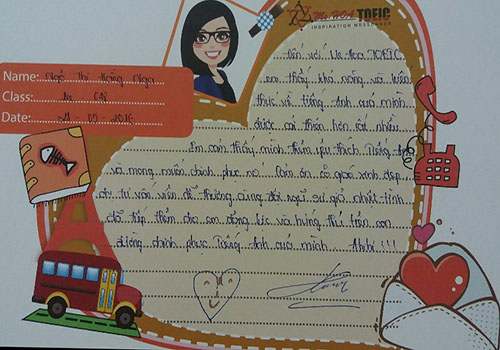 Ms HOA TOEIC
INSPIRATION MESSENGER
Name: Ngô Thị Hồng Nga
Class:
Date: 21 - 05 - 2016
Đến với Ms Hoa TOEIC
em thấy khả năng và kiến
thức về tiếng Anh của mình
được cải thiện hơn rất nhiều.
Em cảm thấy mình thêm yêu thích Tiếng Anh
và mong muốn chinh phục nó. Cảm ơn cô giáo xinh đẹp,
chị tư vấn viên dễ thương cùng đội ngũ sư giả nhiệt tình
đã tiếp thêm cho em động lực và hứng thú trên con
đường chinh phục Tiếng Anh của mình.